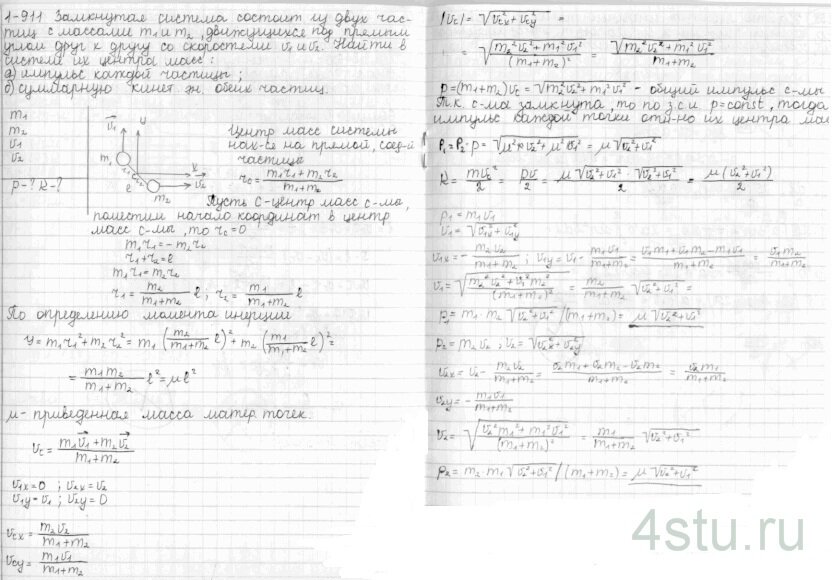 1-911 Замкнутая система состоит из двух час-
тиц с массами m1 и m2, движущихся под прямым
углом друг к другу со скоростями v1 и v2. Найти в
системе их центра масс:
а) импульс каждой частицы;
б) суммарную кинет. эн. обеих частиц.
m1
m2
v1
v2
p-? K-?
v1 y
m1
r1 r2 x
l v2
m2
Центр масс системы
нах-ся на прямой, соед-й
частицы
rc = (m1r1 + m2r2)/(m1+m2)
Пусть C-центр масс с-мы,
поместим начало координат в центр
масс с-мы, то rc=0
m1r1 = -m2r2
r1+r2=l
m1r1 = m2r2
r1 = m2/(m1+m2) l ; r2 = m1/(m1+m2) l
По определению момента инерции
y = m1r1² + m2r2² = m1 (m2/(m1+m2) l)² + m2 (m1/(m1+m2) l)² =
= m1m2/(m1+m2) l² = μl²
μ- приведенная масса матер. точек.
vc = (m1v1 + m2v2)/(m1+m2)
v1x=0 ; v2x=v2
v1y=v1 ; v2y=0
vcx = m2v2/(m1+m2)
vcy = m1v1/(m1+m2)
|vc| = √(vcx² + vcy²) =
= √((m2²v2² + m1²v1²)/(m1+m2)²) = √(m2²v2² + m1²v1²)/(m1+m2)
p=(m1+m2)vc = √(m2²v2² + m1²v1²) - общий импульс с-мы
Т.к. с-ма замкнута, то по з.с.и p=const, тогда
импульс каждой точки отн-но их центра мас
P1=P2=p = √(μ²v2² + μ²v1²) = μ√(v2²+v1²)
K = mv²/2 = pv/2 = μ√(v2²+v1²)·√(v2²+v1²)/2 = μ(v2²+v1²)/2
p1 = m1v1
v1 = √(v1x²+v1y²)
v1x = - m2v2/(m1+m2) ; v1y = v1 - m1v1/(m1+m2) = (v1m1+v1m2-m1v1)/(m1+m2) = v1m2/(m1+m2)
v1 = √((m2²v2² + v1²m2²)/(m1+m2)²) = m2/(m1+m2) √(v2²+v1²) =
p1 = m1·m2 √(v2²+v1²)/(m1+m2) = μ√(v2²+v1²)
p2 = m2v2 ; v2 = √(v2x²+v2y²)
v2x = v2 - m2v2/(m1+m2) = (v2m1+v2m2-v2m2)/(m1+m2) = v2m1/(m1+m2)
v2y = - m1v1/(m1+m2)
v2 = √((v2²m1²+m1²v1²)/(m1+m2)²) = m1/(m1+m2) √(v2²+v1²)
p2 = m2·m1 √(v2²+v1²)/(m1+m2) = μ√(v2²+v1²)
4stu.ru